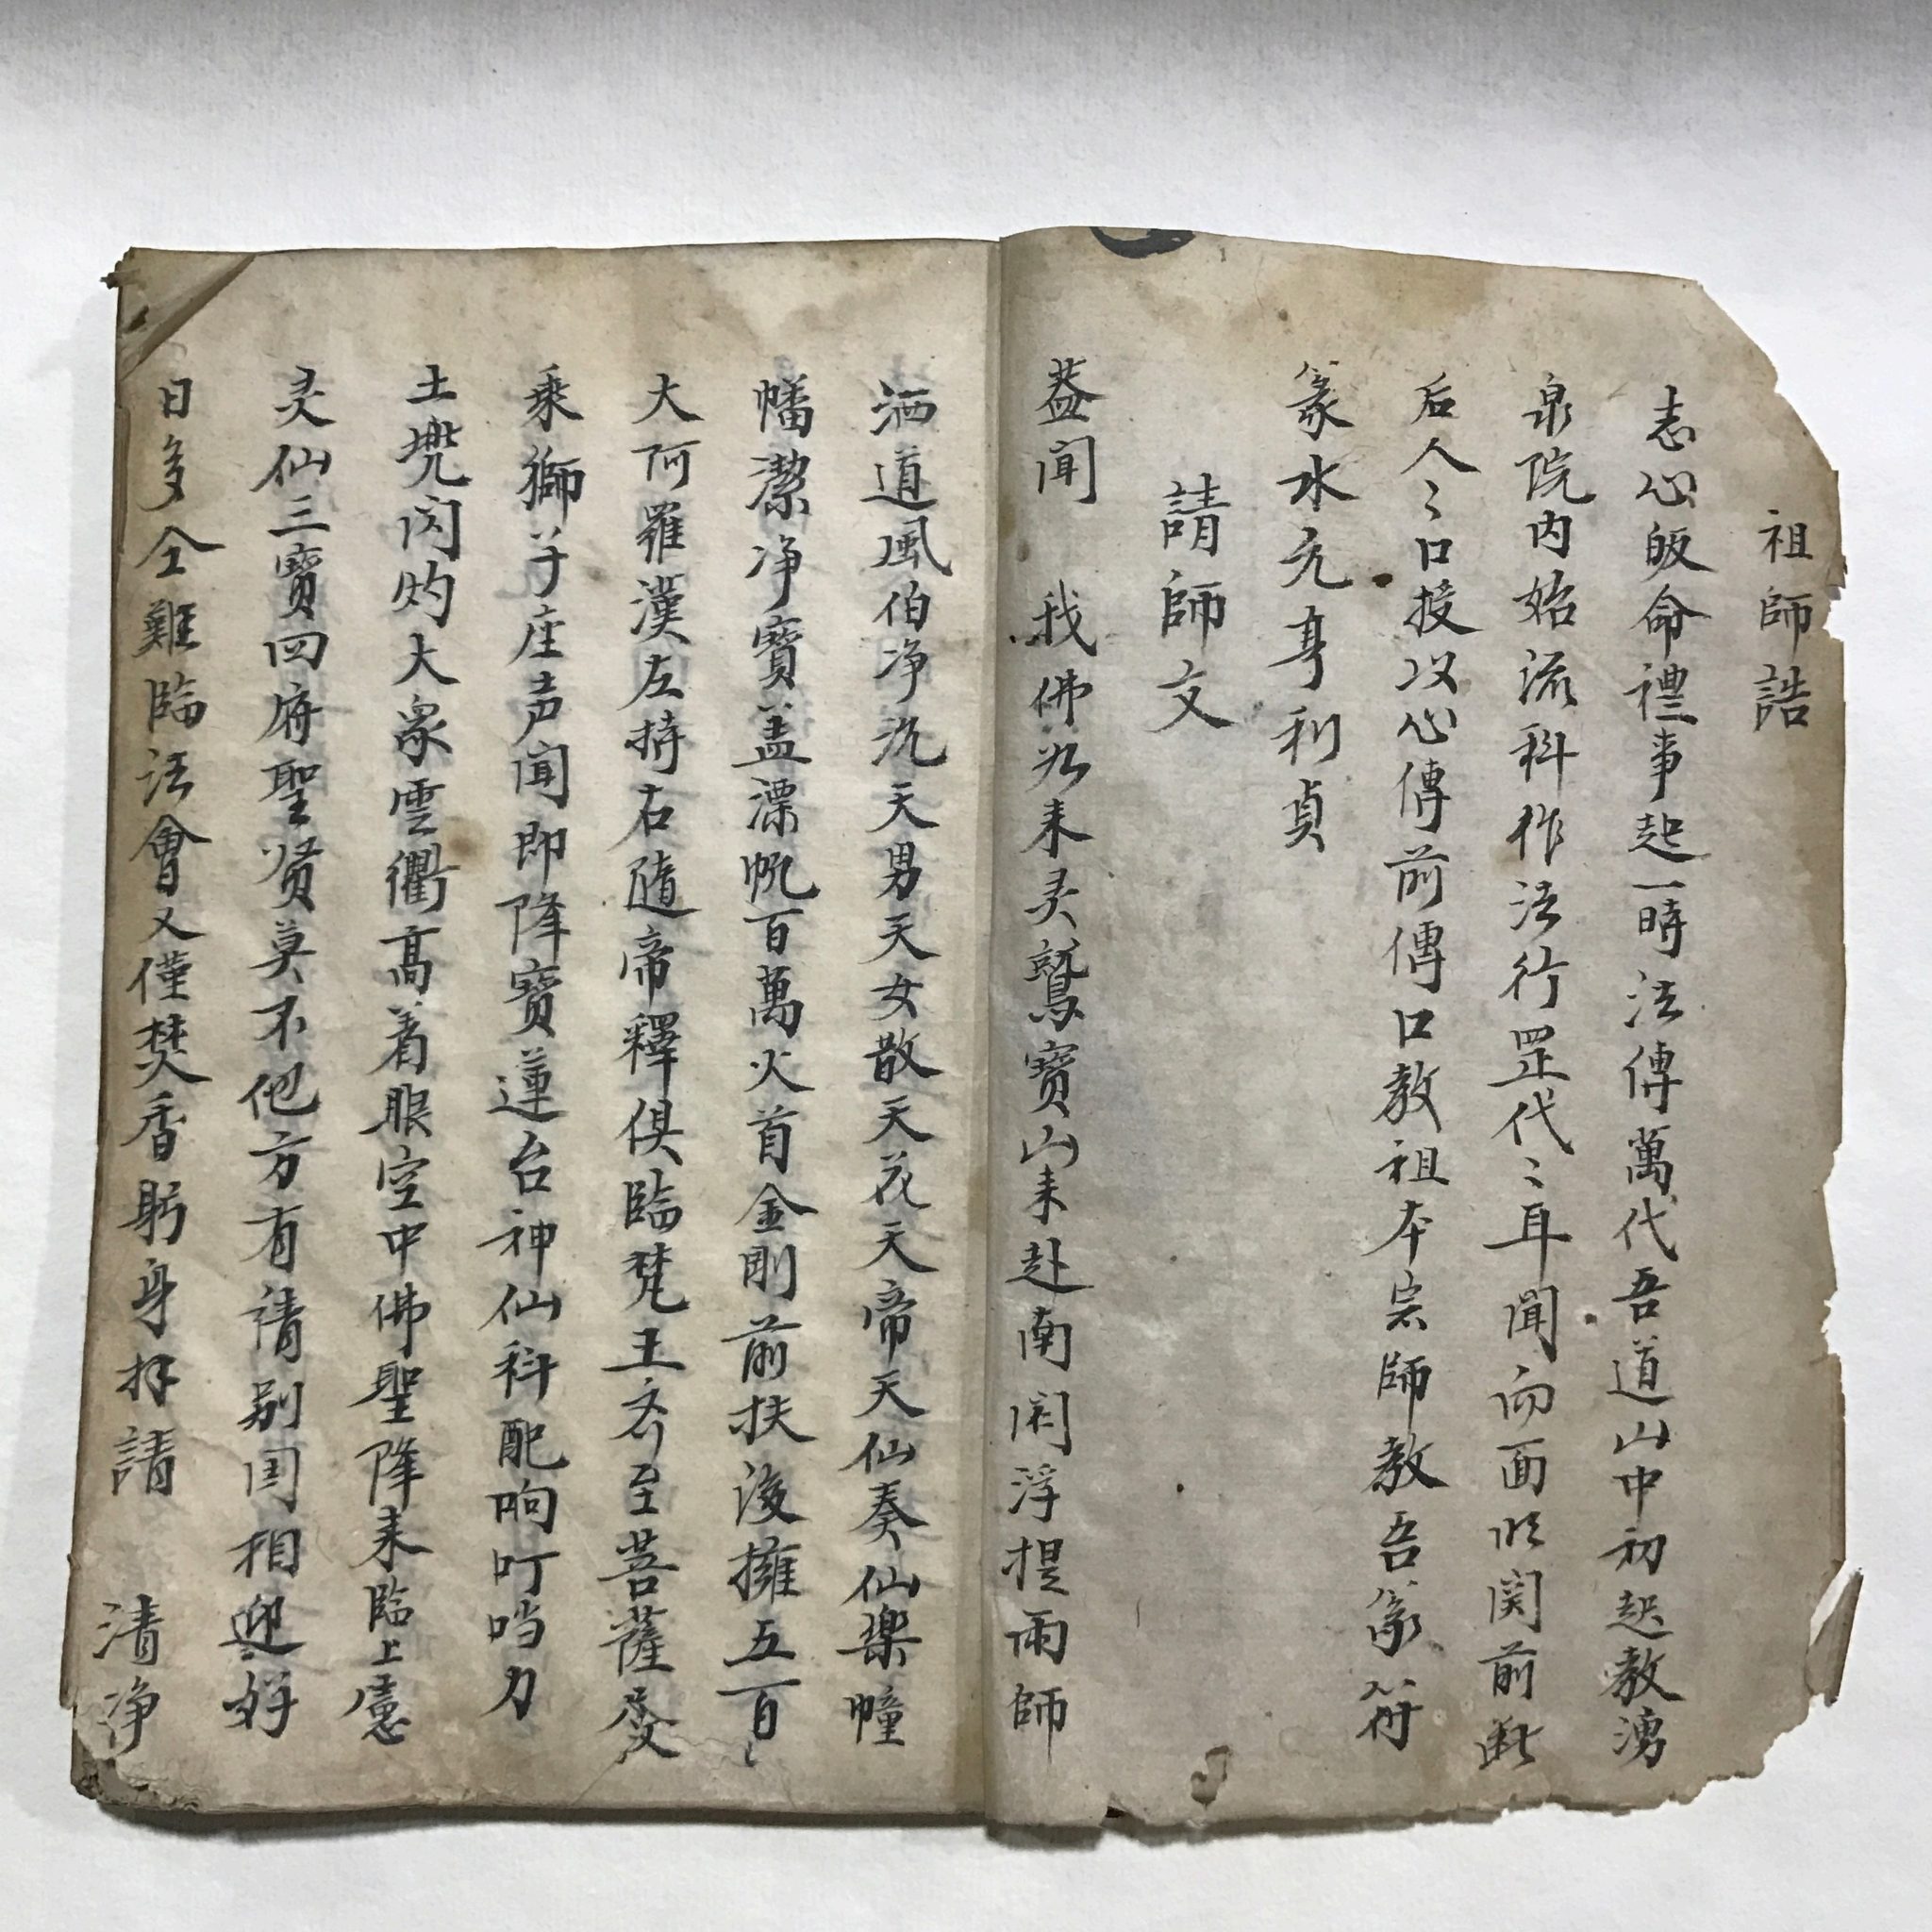 祖師誥
志心皈命禮事起一時法傳萬代吾道山中初起教湧
泉院内始流科作法行罡代〻耳聞向面 関前
后人〻口授以心傳前傳口教祖本宗師教吾篆符
篆水元亨利貞
請師文
葢闻 我佛 来灵鷲寳山来赴南阎浮提雨師
洒道風伯净 天男天女散天花天帝天仙奏仙樂幢
幡潔净寳盖漂 百萬火首金剛前扶後擁五百
大阿羅漢左持右隨帝釋俱臨梵王 至菩薩
乘獅子座声闻即降寳蓮台神仙科配响叮当刀
土 闪灼大象雲衢高着眼空中佛聖降来臨上
灵仙三寳四府聖贤莫不他方有請别 相迎好
日多仝難臨法會又僅焚香躬身拜請 清净